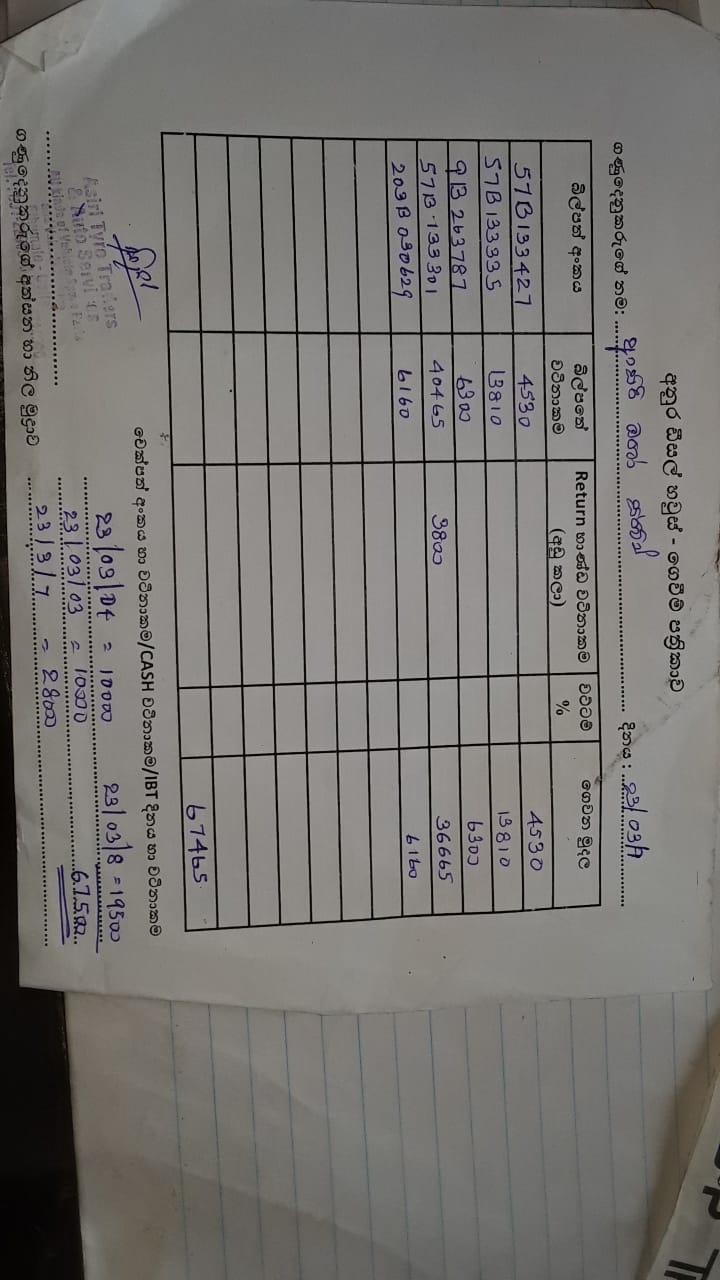 අතුර ඩීසල් හවුස් - ගෙවීම් පත්‍රිකාව
ගණුදෙනුකරුගේ නම: දිනය: 23/03/7
බිල්පත් අංකය බිල්පතේ වටිනාකම Return භාණ්ඩ වටිනාකම (අඩු කලා) වට්ටම් % ගෙවන මුදල
57B133427 4530 4530
57B133335 13810 13810
9B263787 6300 6300
57B-133301 40465 3800 36665
203B030629 6160 6160
67465
චෙක්පත් අංකය හා වටිනාකම/CASH වටිනාකම/IBT දිනය හා වටිනාකම
23/03/04 = 10000 23/03/8 = 19500
23/03/03 = 10000 67500
23/3/7 = 28000
Asiri Tyre Traders
& Auto Servi
ගණුදෙනුකරුගේ අත්සන හා නිල මුද්‍රාව